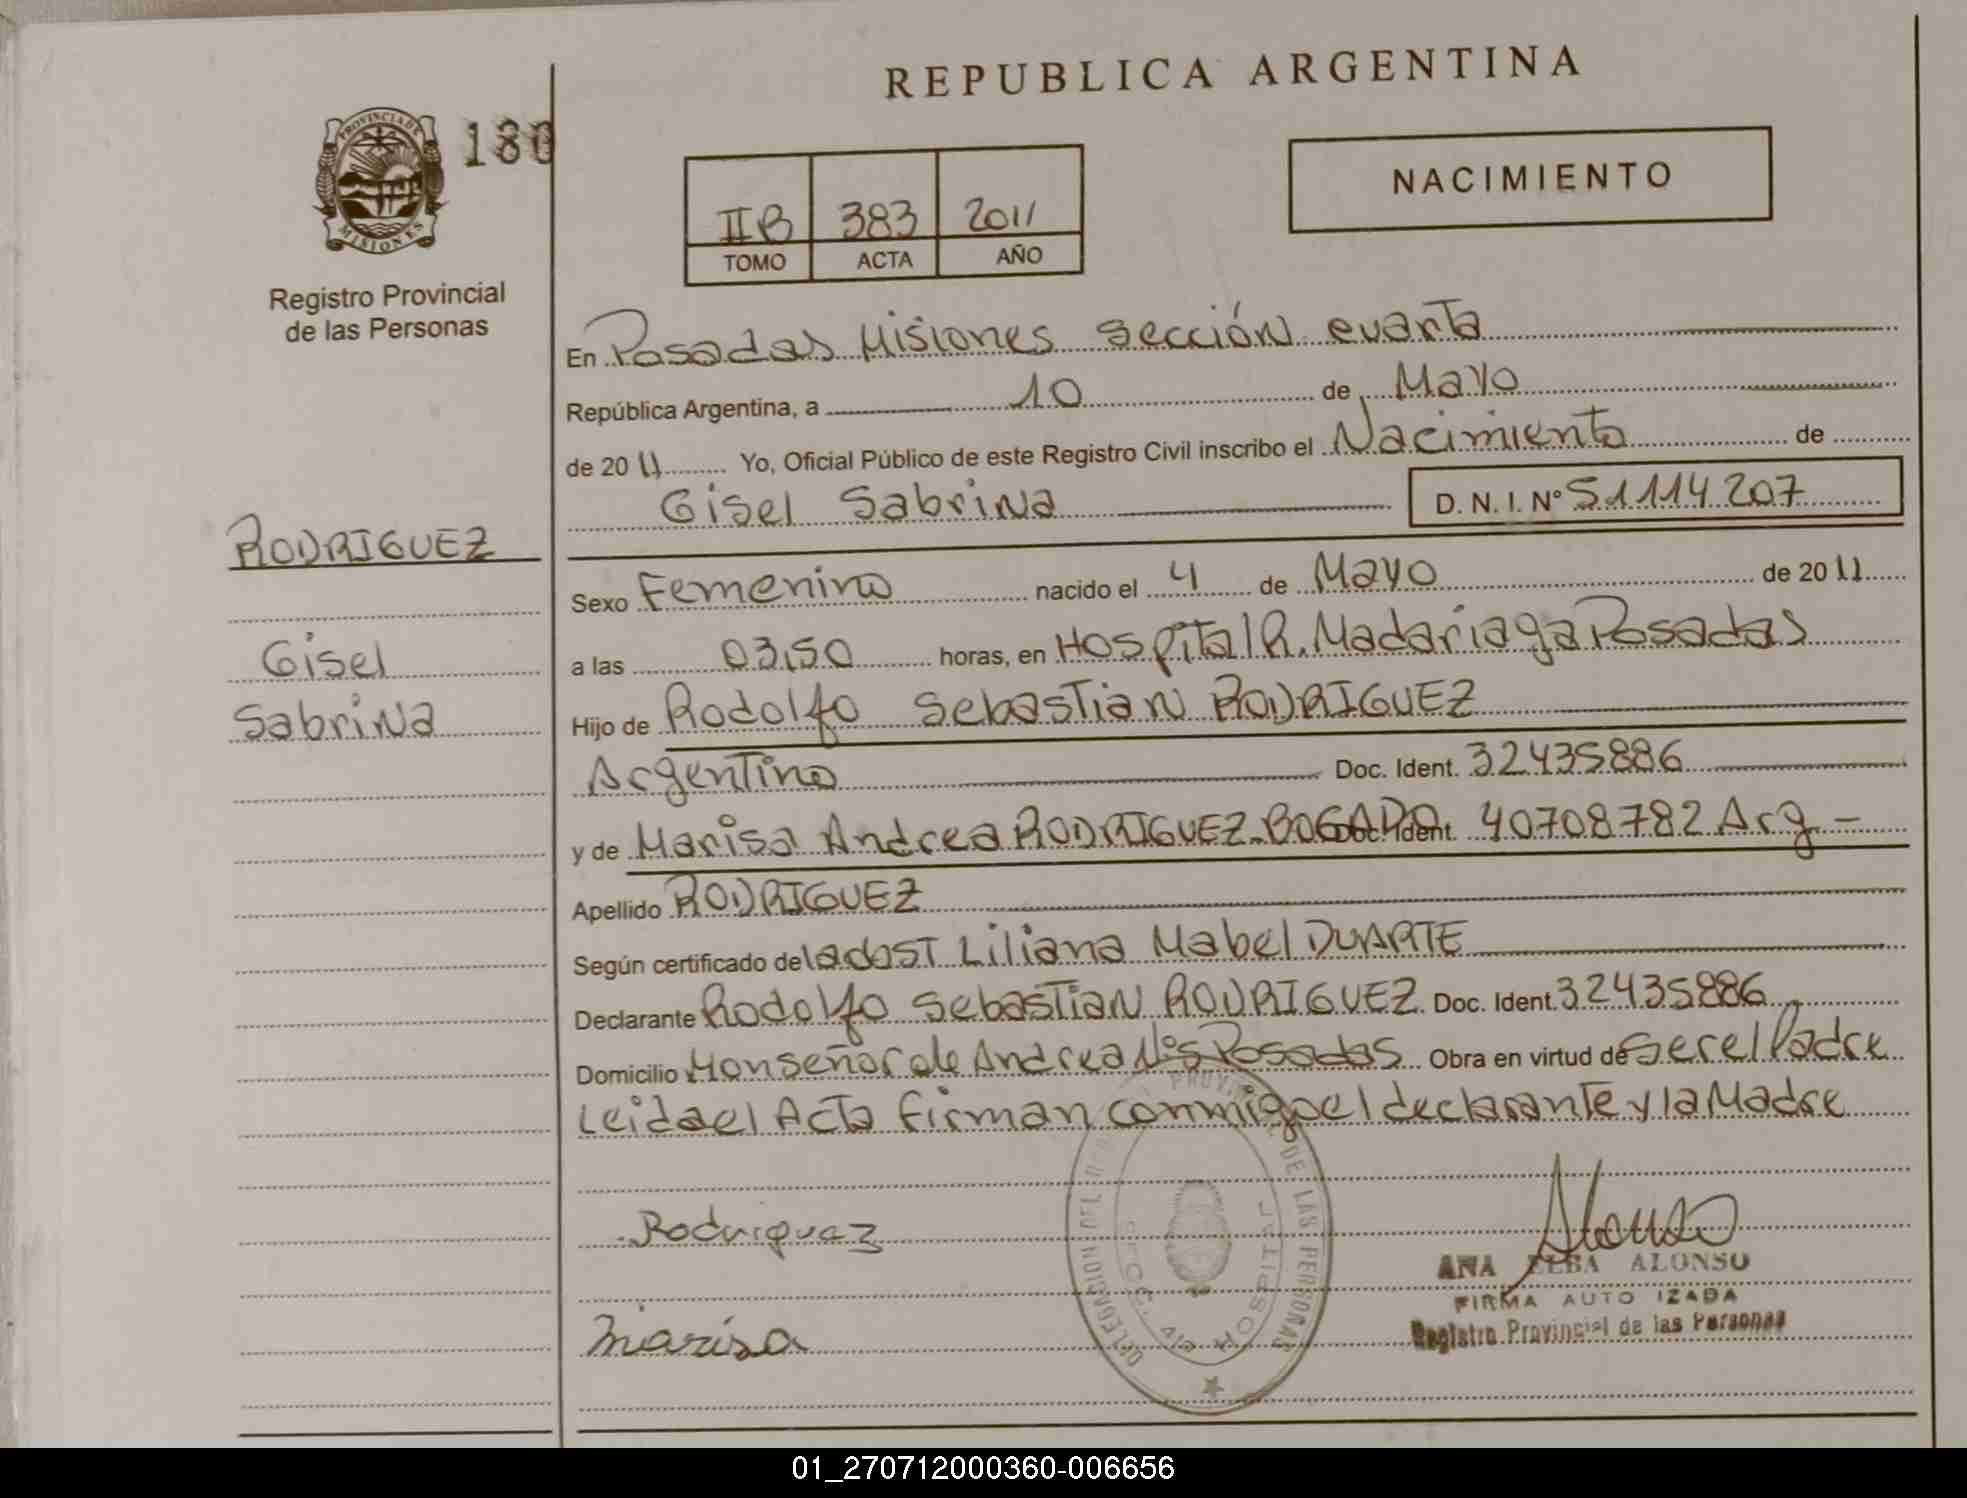 REPUBLICA ARGENTINA
PROVINCIA DE MISIONES
180
Registro Provincial
de las Personas
IIB 383 2011
TOMO ACTA AÑO
NACIMIENTO
En Posadas Misiones sección cuarta
República Argentina, a 10 de Mayo
de 2011 Yo, Oficial Público de este Registro Civil inscribo el Nacimiento de
Gisel Sabrina D. N. I. Nº 51114207
RODRIGUEZ
Gisel
Sabrina
Sexo Femenino nacido el 4 de Mayo de 2011
a las 03,50 horas, en Hospital R. Madariaga Posadas
Hijo de Rodolfo Sebastian RODRIGUEZ
Argentino Doc. Ident. 32435886
y de Marisa Andrea RODRIGUEZ BOGADO Doc. Ident. 40708782 Arg -
Apellido RODRIGUEZ
Según certificado de la obst Liliana Mabel DUARTE
Declarante Rodolfo Sebastian RODRIGUEZ Doc. Ident. 32435886
Domicilio Monseñor de Andrea Posadas Obra en virtud de ser el Padre
Leida el Acta firman conmigo el declarante y la Madre
Rodriguez
Marisa
DELEGACION DEL DE LAS PERSONAS
HOSPITAL
Alonso
ANA ELBA ALONSO
FIRMA AUTO IZADA
Registro Provincial de las Personas
01_270712000360-006656